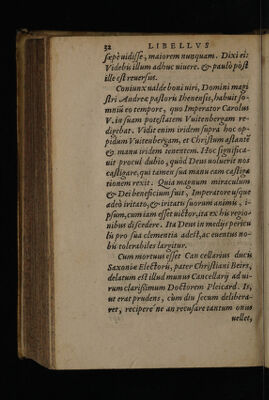 32 LIBELLVS
sæpè uidisse, maiorem nunquam. Dixi ei:
Videbis illum adhuc uiuere. & paulò pòst
ille est reuersus.
Coniunx ualde boni uiri, Domini magi
stri Andreæ pastoris Ihenensis, habuit so-
mniũ eo tempore, quo Imperator Carolus
V. in suam potestatem Vuitenbergam re-
digebat. Vidit enim iridem supra hoc op-
pidum Vuitenbergam, et Christum astante
& manu iridem tenentem. Hoc significa-
uit procul dubio, quòd Deus uoluerit nos
castigare, qui tamen sua manu eam castiga
tionem rexit. Quia magnum miraculum
& Dei beneficium fuit, Imperatore usque
adeò iritato, & iritatis suorum animis, i-
psum, cum iam esset uictor, ita ex his regio-
nibus discedere. Ita Deus in medijs pericu
lis pro sua clementia adest, ac euentus no-
bis tolerabiles largitur.
Cum mortuus esset Cancellarius ducis
Saxoniæ Electoris, pater Christiani Beirs,
delatum est illud munus Cancellarij ad ui-
rum clarissimum Doctorem Pleicard. Is,
ut erat prudens, cum diu secum delibera-
ret, recipere ne an recusare tantum onus
uellet,